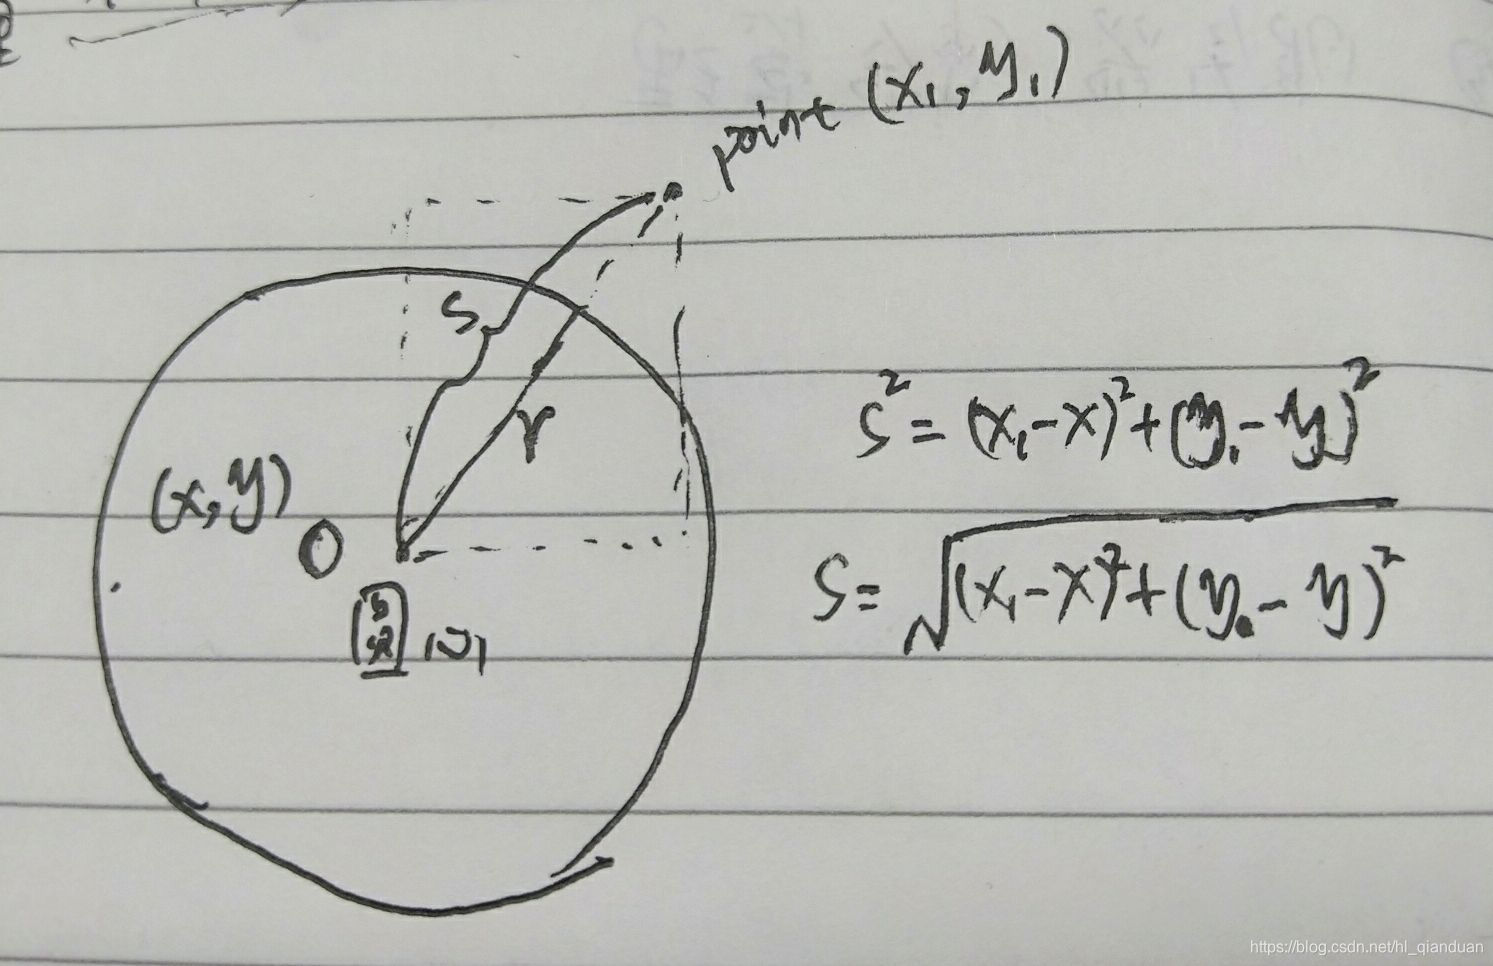 point (x₁, y₁)
S
r
(x, y)
O
圆心
S² = (x₁-x)² + (y₁-y)²
S = √(x₁-x)² + (y₁-y)²
https://blog.csdn.net/hl_qianduan